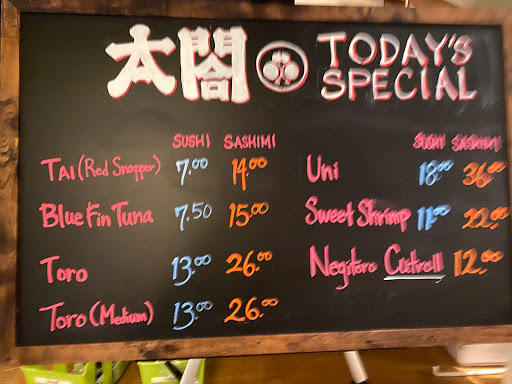 太閤 TODAY'S
SPECIAL
SUSHI SASHIMI
TAI (Red Snapper) 7.00 14.00
Blue Fin Tuna 7.50 15.00
Toro 13.00 26.00
Toro (Medium) 13.00 26.00
SUSHI SASHIMI
Uni 18.00 36.00
Sweet Shrimp 11.00 22.00
Negitoro Cutroll 12.00